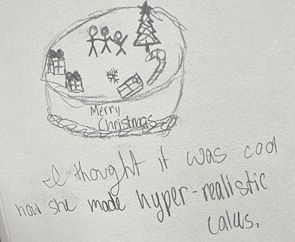 Merry
Christmas
I thought it was cool
how she made hyper-realistic
cakes.